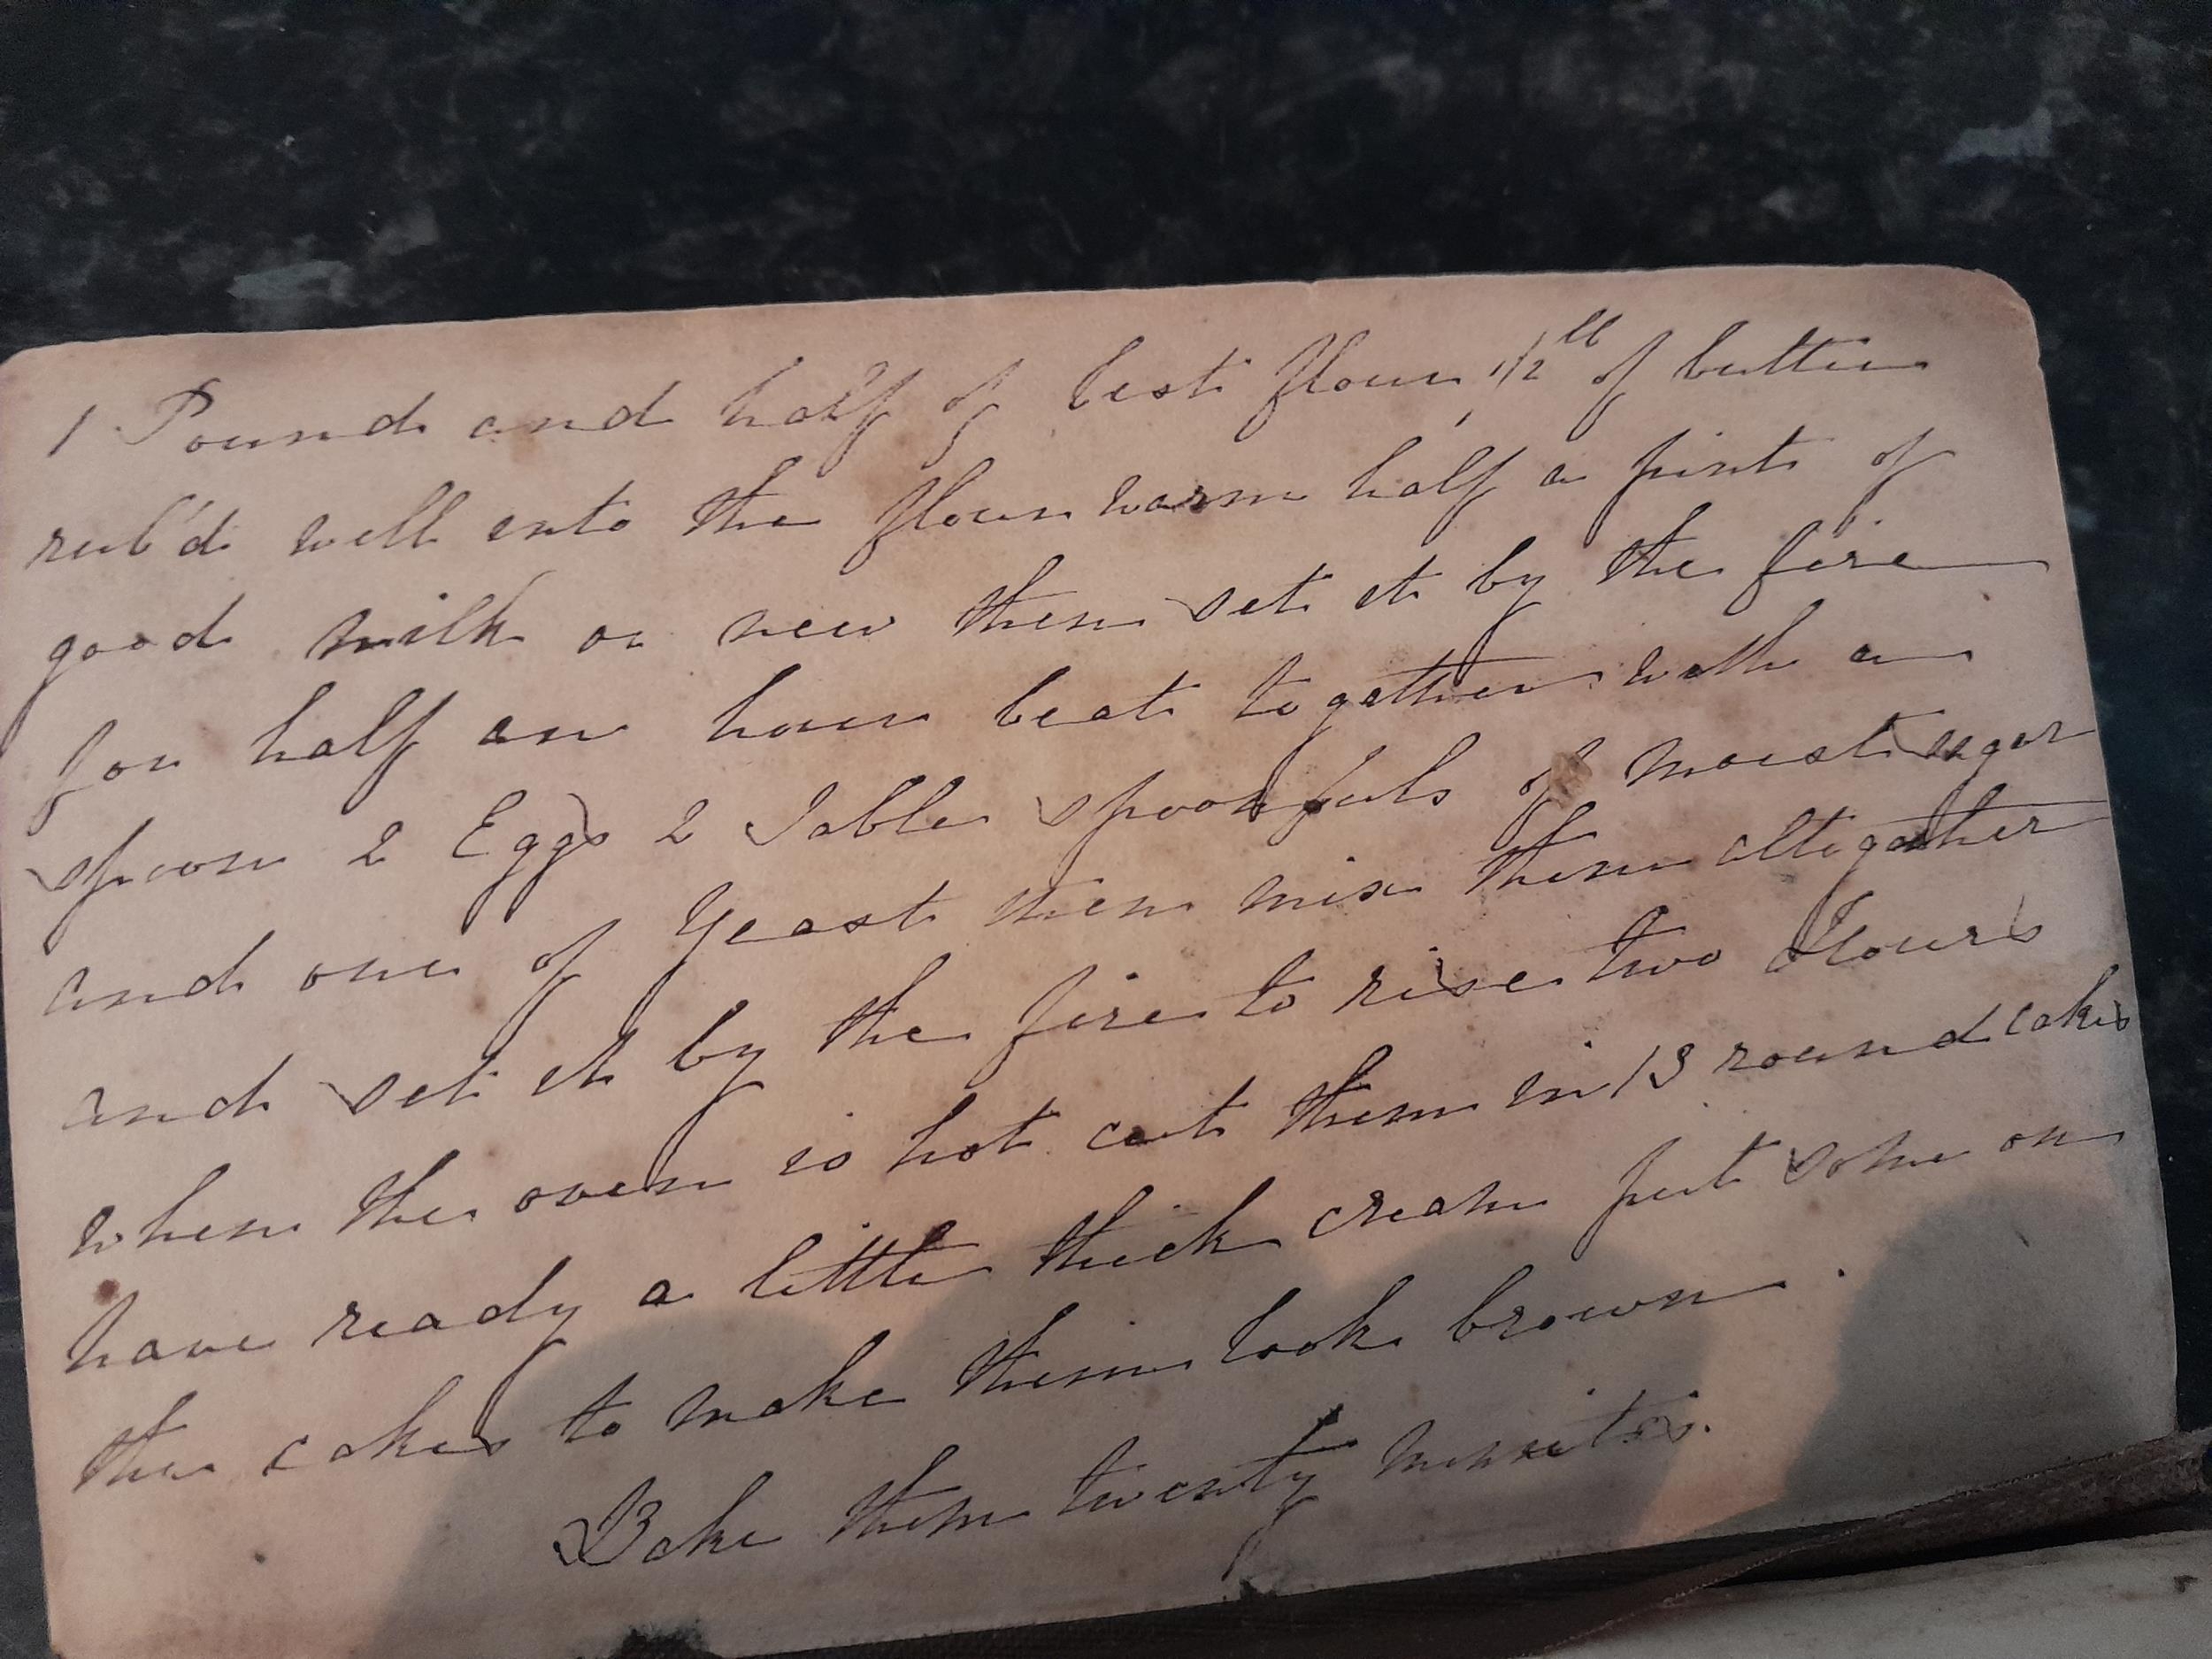 1 Pound and half of best flour, 1/2 lb of butter
rub'd well into the flour warm half a pint of
good milk or new then set it by the fire
for half an hour beat together with a
spoon 2 Eggs 2 Table spoonfuls of moist sugar
and one of Yeast then mix them altogather
and set it by the fire to rise two Hours
when the oven is hot cut them in 13 round cakes
have ready a little thick cream put some on
the cakes to make them look brown.
Bake them twenty minnits.